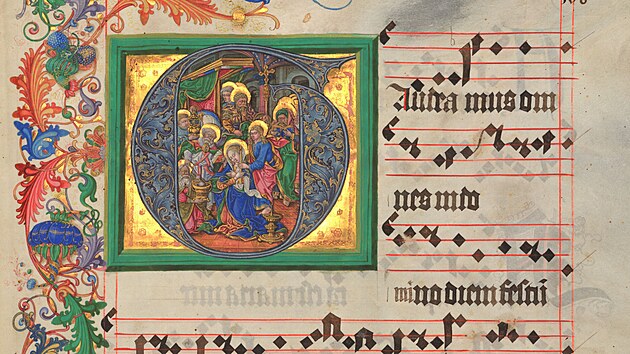 GAudea mus om
nes in do
mi no diem festū